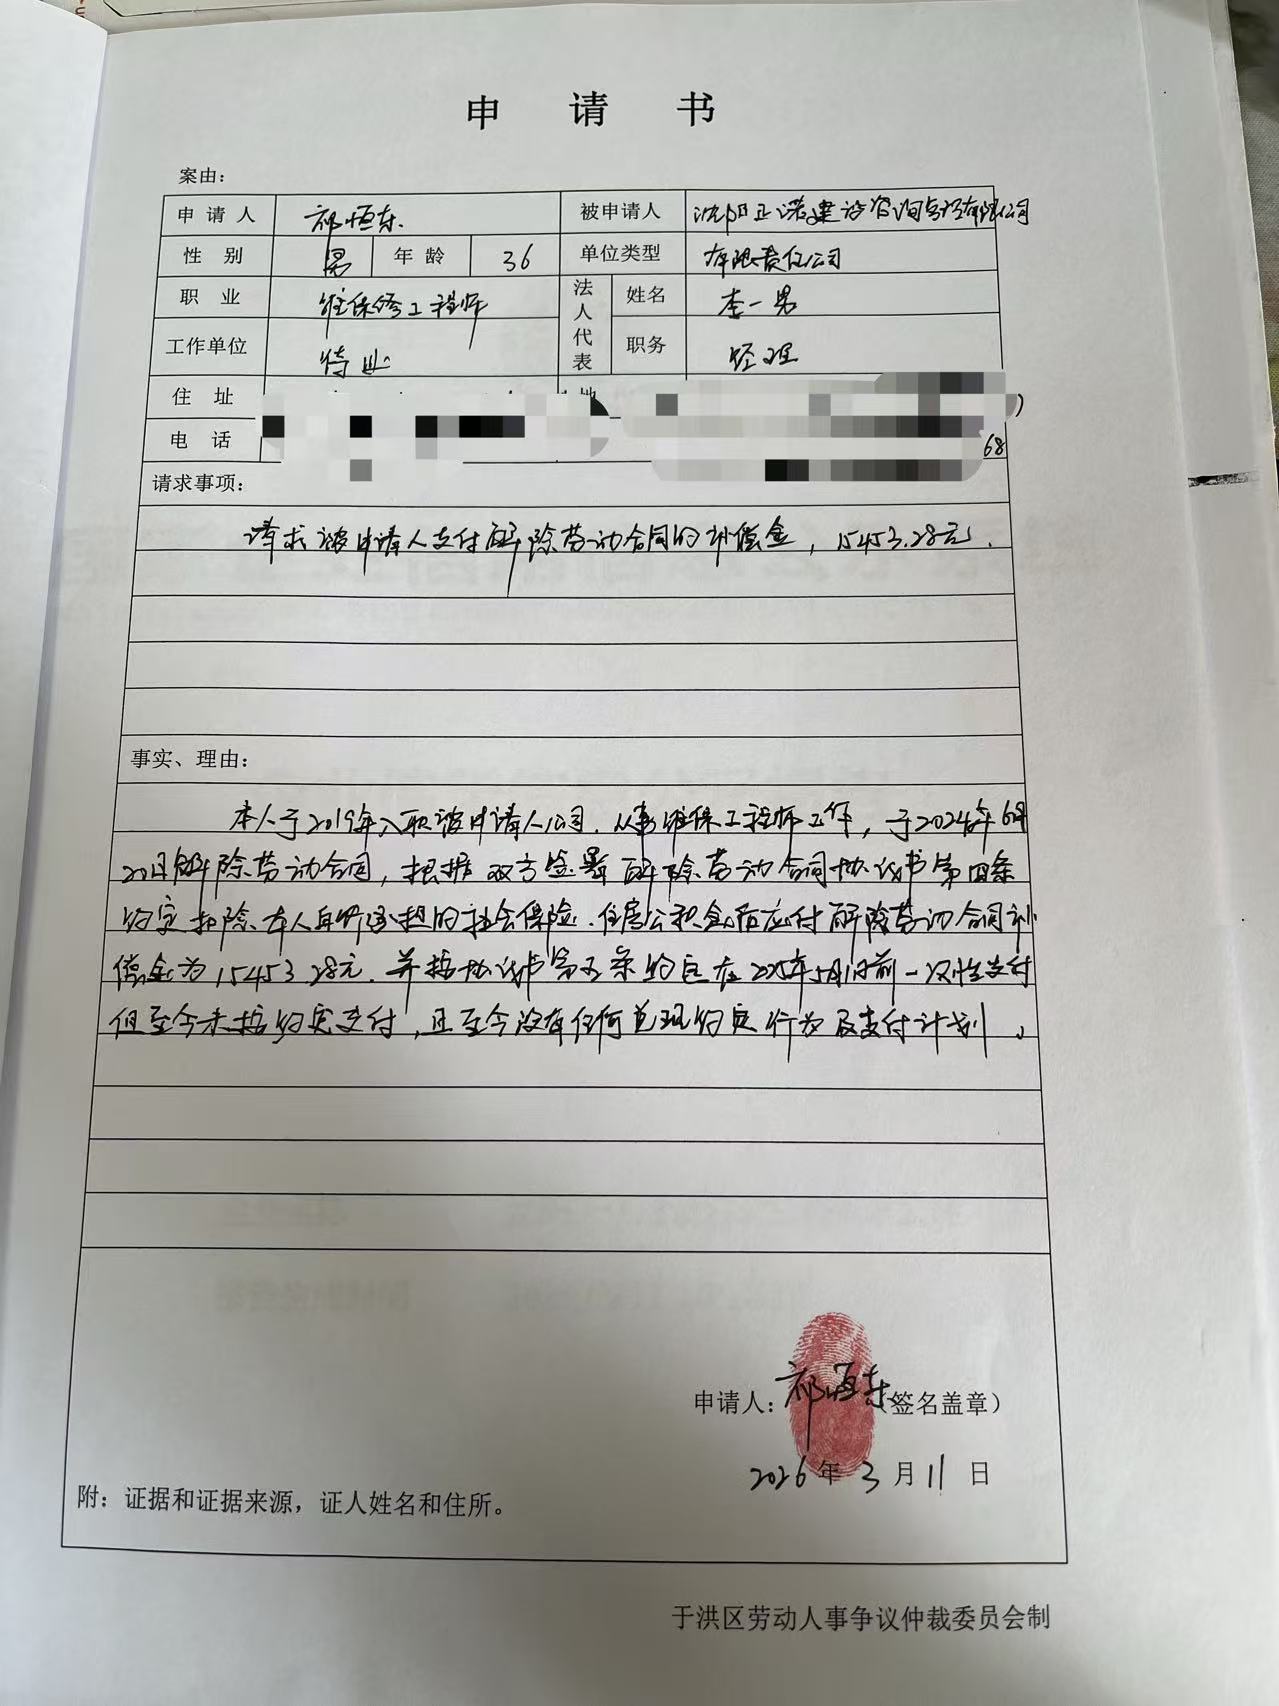 申 请 书
案由：
申 请 人 祁恒东 被申请人 沈阳正诺建设咨询有限公司
性 别 男 年 龄 36 单位类型 有限责任公司
职 业 维保修工程师 法人代表 姓名 李一男
工作单位 待业 职务 经理
住 址
电 话 68
请求事项：
请求被申请人支付解除劳动合同的补偿金，15453.28元.
事实、理由：
本人于2019年入职被申请人公司.从事维保工程师工作，于2024年6月
20日解除劳动合同，根据双方签署解除劳动合同协议书第四条
约定扣除本人自行承担的社会保险.住房公积金后应付解除劳动合同补
偿金为15453.28元.并按协议书第五条约定在2025年5月1日前一次性支付
但至今未按约定支付，且至今没有任何兑现约定行为及支付计划。
申请人：祁恒东（签名盖章）
2026年3月11日
附：证据和证据来源，证人姓名和住所。
于洪区劳动人事争议仲裁委员会制